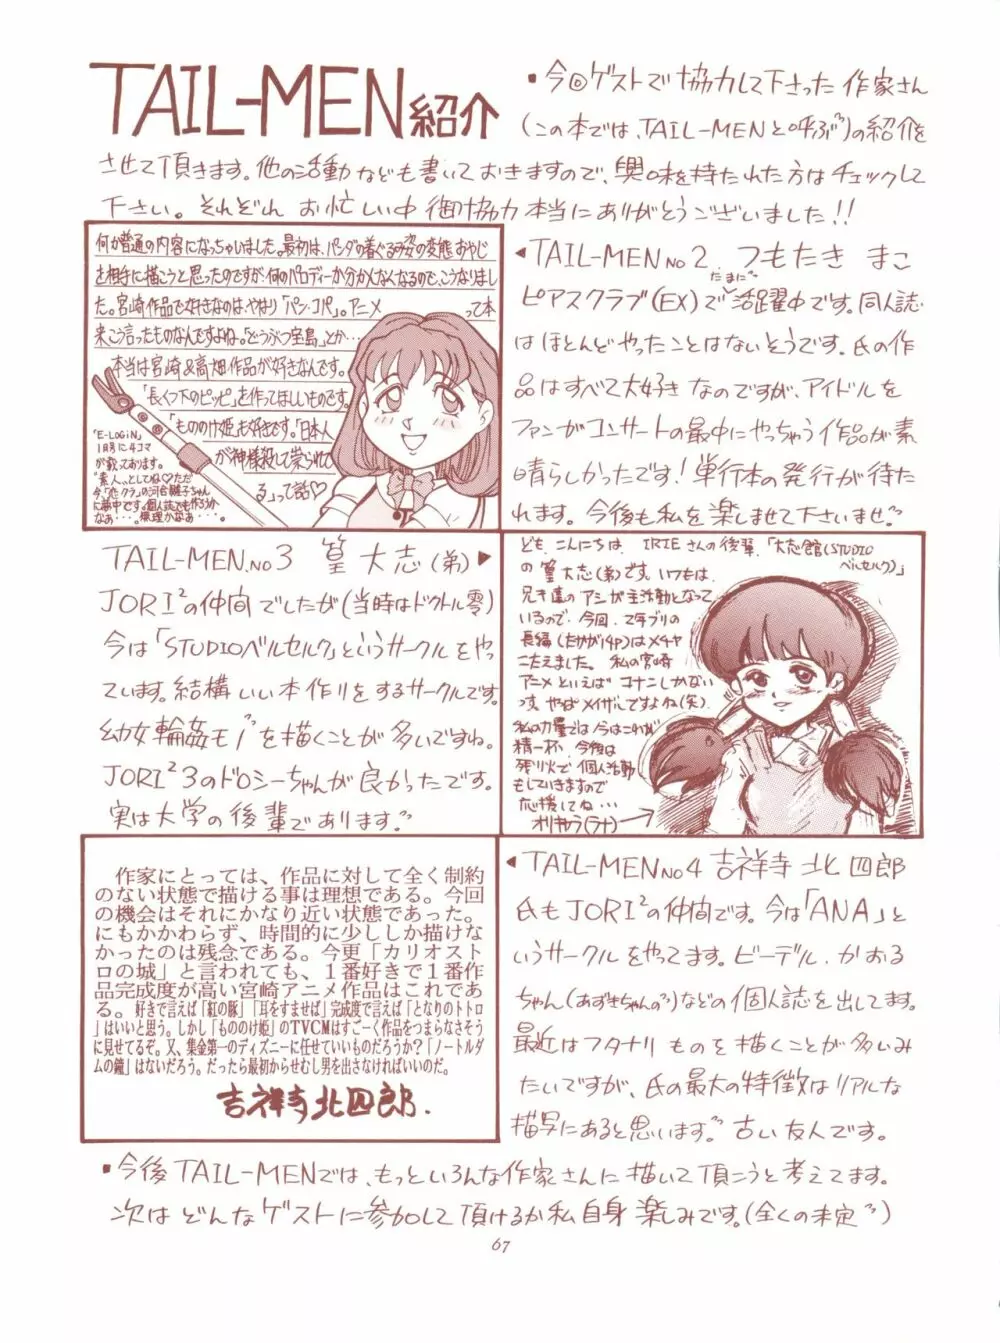 TAIL-MEN紹介
・今回ゲストで協力して下さった作家さん
(この本では、TAIL-MENと呼ぶ)の紹介を
させて頂きます。他の活動なども書いておきますので、興味を持たれた方はチェックして
下さい。それぞれ お忙しい中 御協力 本当にありがとうございました!!
何か普通の内容になっちゃいました。最初は、パンダの着ぐるみ姿の変態おやじ
を相手に描こうと思ったのですが、何のパロディーか分かんなくなるので、こうなりまし
た。宮崎作品で好きなのは、やはり「パン・コパ」。アニメって本
来こう言ったものなんですよね。「どうぶつ宝島」とか…
本当は宮崎&高畑作品が好きなんです。
「長くつ下のピッピ」を作ってほしいものです。
「もののけ姫」も好きです。「日本人
が神様殺して祟られて
る」って話♡
「E-LOGiN」
1月号に4コマ
が載っております。
"素人"としてね♡ただ
◀TAIL-MEN No2. つもたき まこ
ピアスクラブ(EX)でたまに活躍中です。同人誌
はほとんどやったことはないそうです。氏の作
品はすべて大好きなのですが、アイドルを
ファンがコンサートの最中にやっちゃう作品が素
晴らしかったです!単行本の発行が待た
れます。今後も私を楽しませて下さいませ。
TAIL-MEN.No3 篁 大志(弟)▶
JORI²の仲間でしたが(当時はドクトル零)
今は「STUDIOベルセルク」というサークルをやっ
ています。結構いい本作りをするサークルです。
JORI²3のドロシーちゃんが良かったです。
実は大学の後輩であります。
ども、こんにちは、IRIEさんの後輩、「大志館(STUDIO
ベルセルク)」
の篁 大志(弟)です。いつもは、
兄き達のアシが主活動となって
いるので、今回、2年ブリの
長編(たかが14P)はメチャ
こたえました。私の宮崎
アニメといえば コナンしかない
っす。やっぱメイザルですよね(笑)。
私の力量では今はこれが
精一杯、今後は
残り火で個人活動
もしていきますので
応援してね…
オリキャラ(ラナ)
作家にとっては、作品に対して全く制約
のない状態で描ける事は理想である。今回
の機会はそれにかなり近い状態であった。
にもかかわらず、時間的に少ししか描けな
かったのは残念である。今更「カリオスト
ロの城」と言われても、1番好きで1番作
品完成度が高い宮崎アニメ作品はこれであ
る。好きで言えば「紅の豚」「耳をすませば」完成度で言えば「となりのトトロ
」はいいと思う。しかし「もののけ姫」のTVCMはすごーく作品をつまらなさそう
に見せてるぞ。又、集金第一のディズニーに任せていいものだろうか?「ノートルダ
ムの鐘」はないだろう。だったら最初からせむし男を出さなければいいのだ。
吉祥寺北四郎.
◀TAIL-MEN No4 吉祥寺 北四郎
氏もJORI²の仲間です。今は「ANA」と
いうサークルをやってます。ビーデル、かおる
ちゃん(あずきちゃんの)などの個人誌を出してます。
最近はフタナリものを描くことが多いみ
たいですが、氏の最大の特徴はリアルな
描写にあると思います。古い友人です。
・今後TAIL-MENでは、もっといろんな作家さんに描いて頂こうと考えてます。
次はどんなゲストに参加して頂けるか私自身楽しみです。(全くの未定)
67